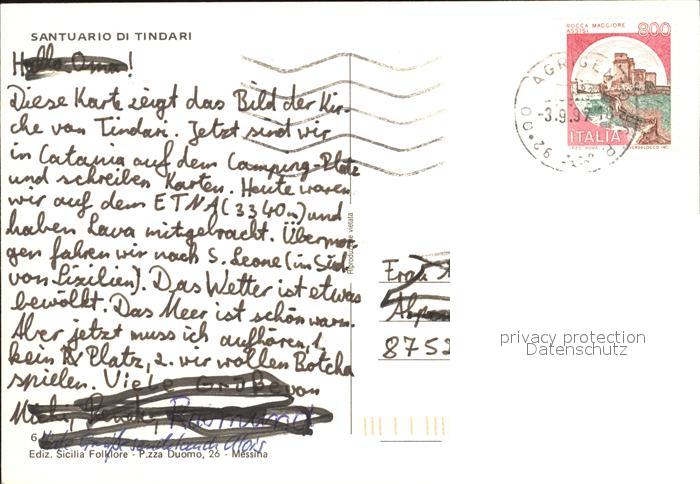 SANTUARIO DI TINDARI
Hallo Oma!
Diese Karte zeigt das Bild der Kir-
che van Tindari. Jetzt sind wir
in Catania auf dem Camping-Platz
und schreiben Karten. Heute waren
wir auf dem ETNA (3340m) und
haben Lava mitgebracht. Übermor-
gen fahren wir nach S. Leone (im Süd
von Sizilien). Das Wetter ist etwas
bewölkt. Das Meer ist schön warm.
Aber jetzt muss ich aufhören, 1.
kein Platz, 2. wir wollen Botcha
spielen. Viele Grüße von
Ediz. Sicilia Folklore - P.zza Duomo, 26 - Messina
Riproduzione vietata
ROCCA MAGGIORE
ASSISI
800
ITALIA
-3.9.92
8752
privacy protection
Datenschutz